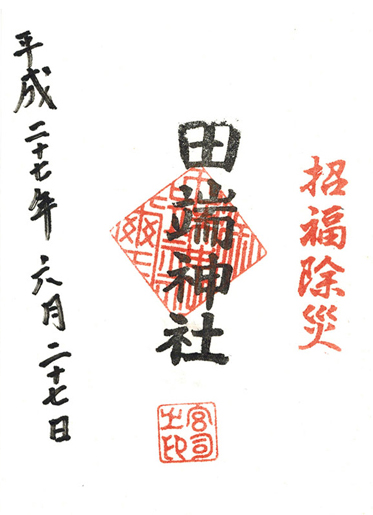 招福除災
田端神社
宮司
之印
平成二十七年六月二十七日